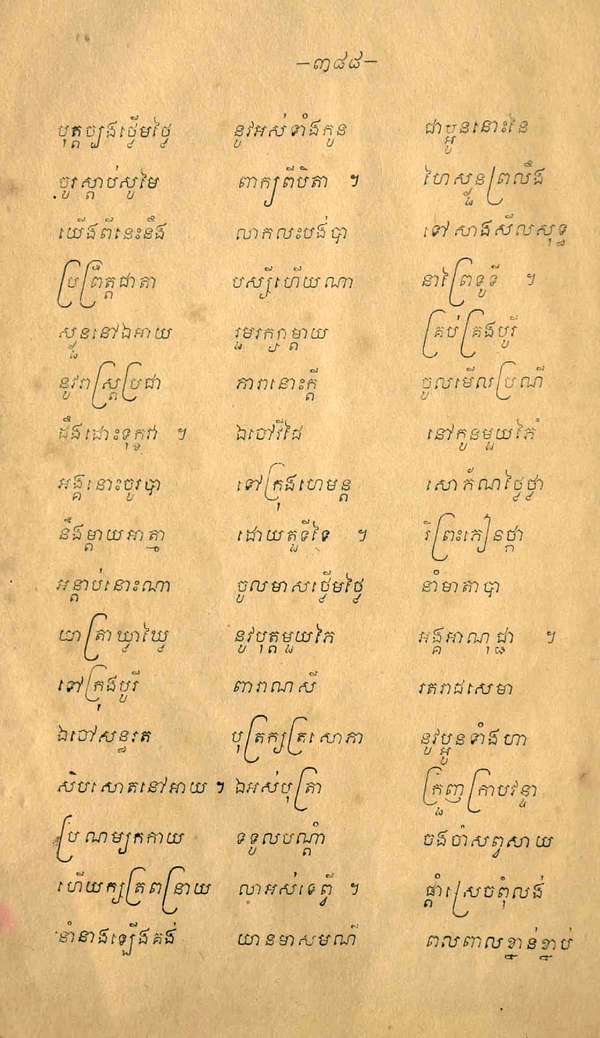 –៣៨៨–
បុត្តច្បងថ្មើមថ្ងៃ នូវអស់ទាំងកូន ជាប្អូននោះនៃ
ចូរស្ដាប់សូមៃ ពាក្យពីបិតា ។ ហៃស្ងួនព្រលឹង
យើងពីនេះនឹង លាកលះបង់បា ទៅសាងសីលសុទ្ធ
ប្រព្រឹត្តជាតា បស្បីហើយណា នាព្រៃទួទី ។
ស្ងួននៅឯអាយ រួមរក្សាម្ដាយ គ្រប់គ្រងបូរី
នូវរាស្ត្រប្រជា ភារានោះក្ដី ចូលមើលប្រណី
ដឹងដោះទុក្ខវា ។ ឯចៅវីដៃ នៅកូនមួយភៃ
អង្គនោះចូរបា ទៅក្រុងហេមន្ត សោភ័ណថ្ងៃថ្លា
នឹងម្ដាយអាត្មា ដោយតួទីទៃ ។ រីព្រះភឿនថ្កា
អន្តាប់នោះណា ចូលមាសថ្មើមថ្ងៃ នាំមាតាបា
យាត្រាឃ្វាឃ្វៃ នូវបុត្តមួយភៃ អង្គអាណុជ្ជា ។
ទៅក្រុងបូរី ពារាណសី រតរាជសេមា
ឯចៅសន្ធរត បុត្រក្សត្រសោភា នូវប្អូនទាំងហា
សិបសោតនៅអាយ ។ ឯអស់បុត្រា ក្រួញក្រាបវន្ទា
ប្រណម្យកកាយ ទទូលបណ្ដាំ ចងចាំសព្វសាយ
ហើយក្សត្រពន្រាយ លាអស់ទេព្វី ។ ផ្ដាំស្រេចពុំលង់
នាំនាងឡើងគង់ យានមាសមណី ពលពាលខ្នាន់ខ្នាប់